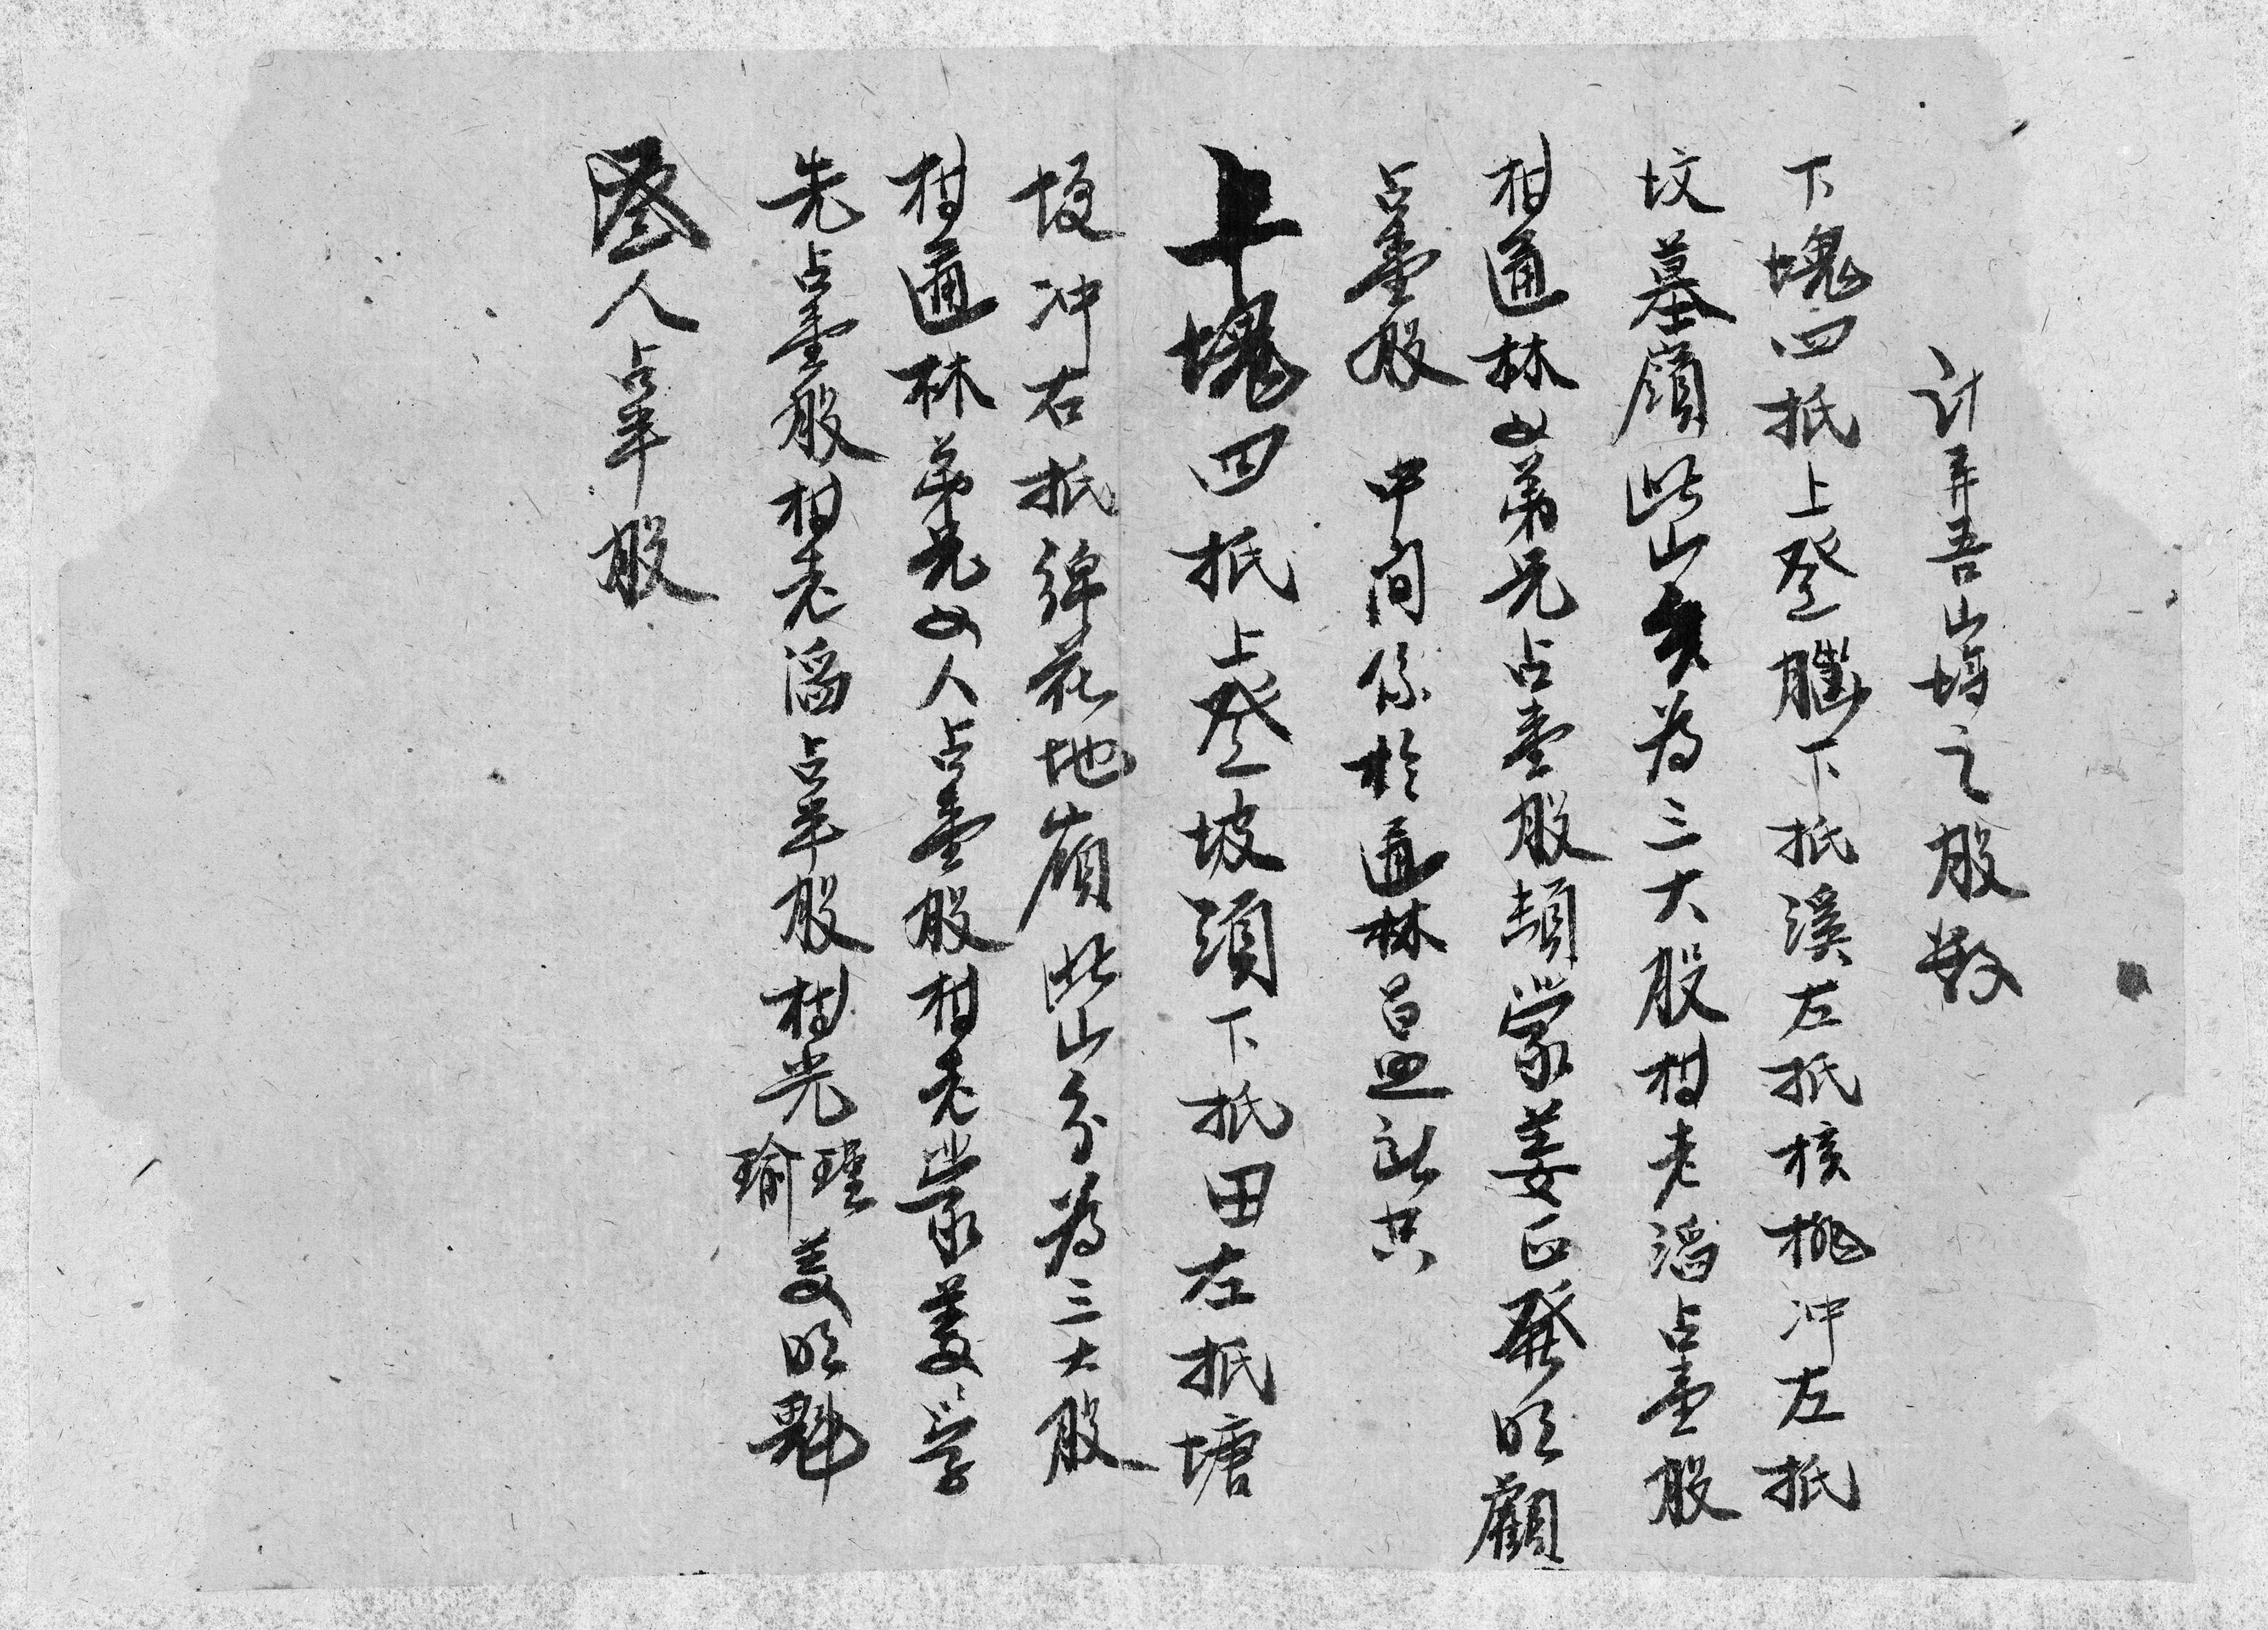 計弄吾山塲之股数
下塊四抵上登𦢊下抵溪左抵核桃冲左抵
坟墓嶺此山分為三大股村老滔占壹股
村通林父弟兄占壹股頡蒙姜正發明顧
占壹股 中間係於通林昌盛所共
上塊四抵上登坡頭下抵田左抵塘
埂冲右抵綿花地嶺此山分為三大股
村通林弟兄四人占壹股村老蒙姜学
先占壹股村老滔占半股村光瑾瑜姜明魁
叁人占半股